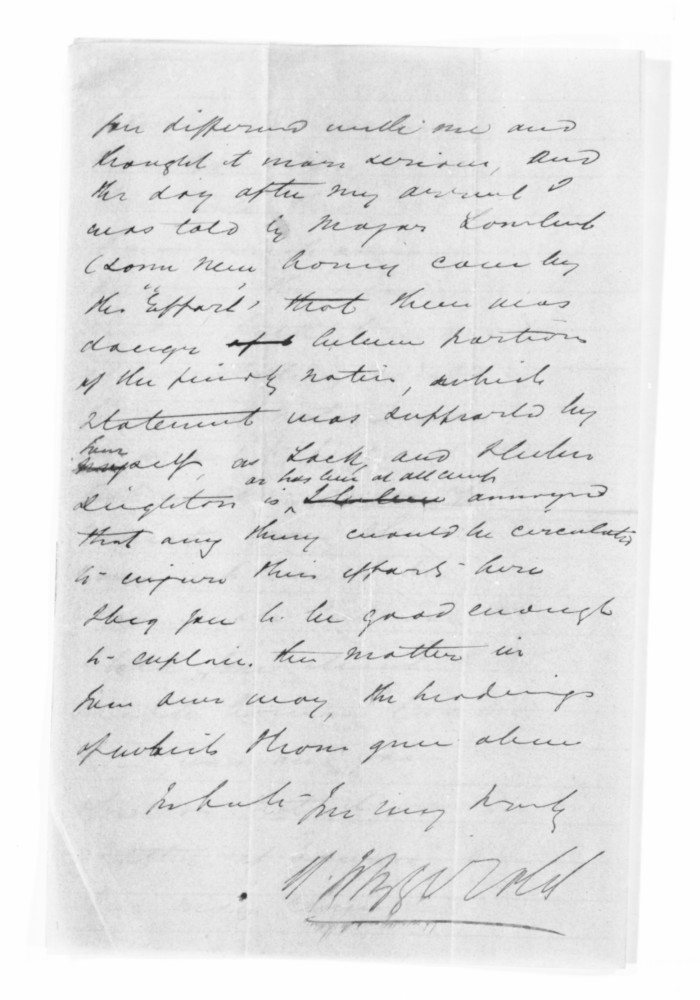 you differed with me and
thought it more serious, and
the day after my arrival I
was told by Major Lambert
( now having come by
the "Effort" that there was
danger between portions
of the finally natives, which
statement was supported by
yourself, as Lock, and
is as has been at all annoyed
that any thing would be circulated
to injure their efforts here
I beg you to be good enough
to explain the matter in
your own way, the headings
of which I have given above
In haste I'm very truly
W. Fitzgerald